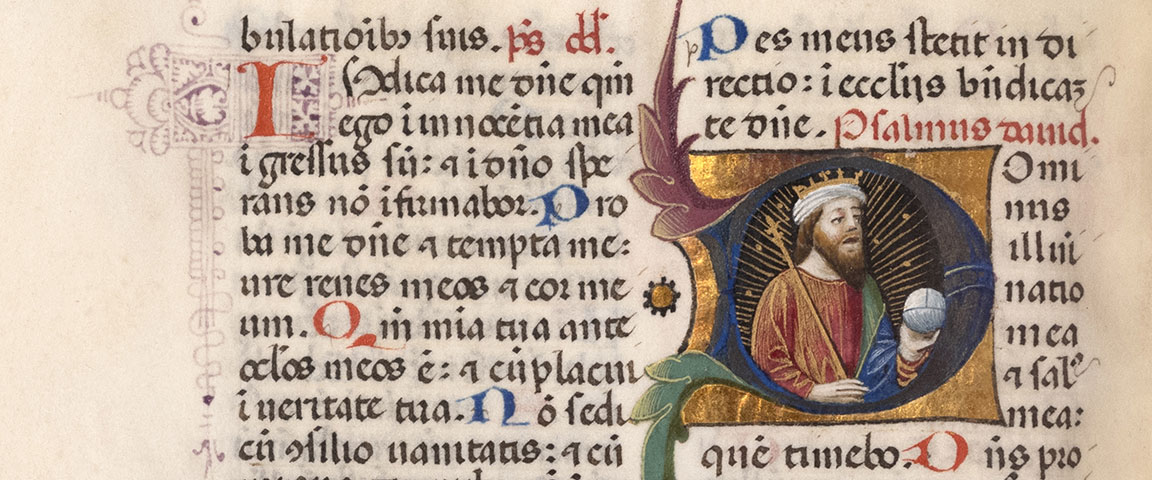 bulatioıb9 suis. p̄s dd̄.
Iudica me dn̄e qm̄
ego i innocētia mea
igressus sū: ⁊ i dn̄o spe
rans nō ifirmabor. Pro
ba me dn̄e ⁊ tempta me:
ure renes meos ⁊ cor me
um. Qm̄ mīa tua ante
oclos meos ē: ⁊ cūplacui
i ueritate tua. Nō sedi
cū ꝯsilio uanitatis: ⁊ cū
Pes meus stetit in di
rectio: i eccliis bn̄dicaꝫ
te dn̄e. Psalmus dauid.
Domi
nus
illūi
natio
mea
⁊ salꝰ
mea:
quē timebo. Dn̄s pro